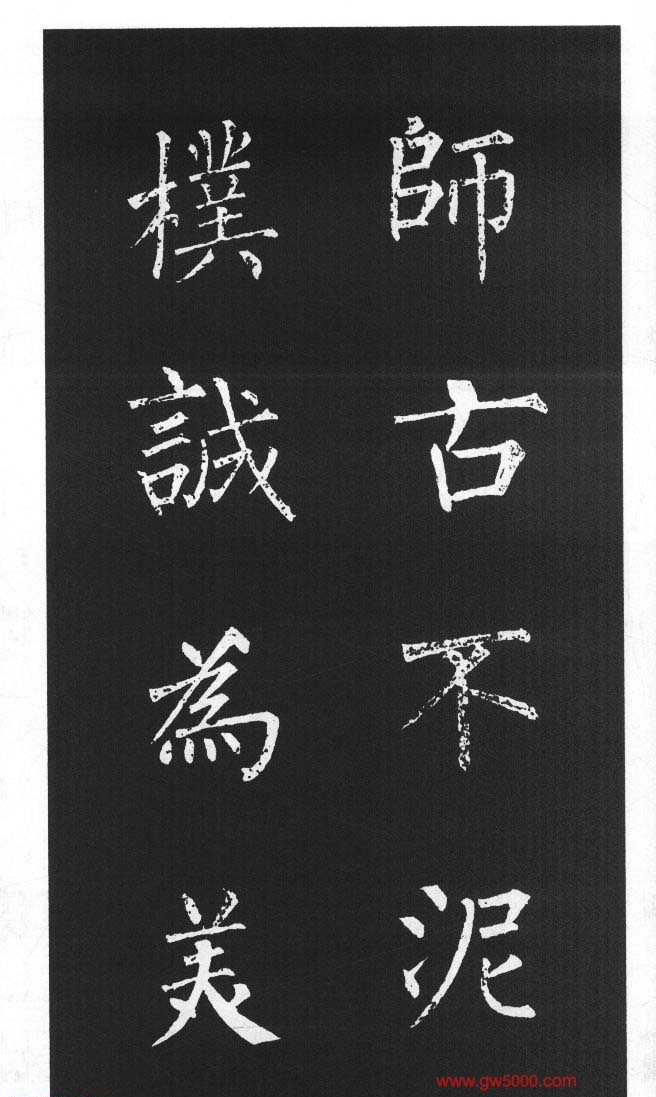 師古不泥
樸誠為美
www.gw5000.com